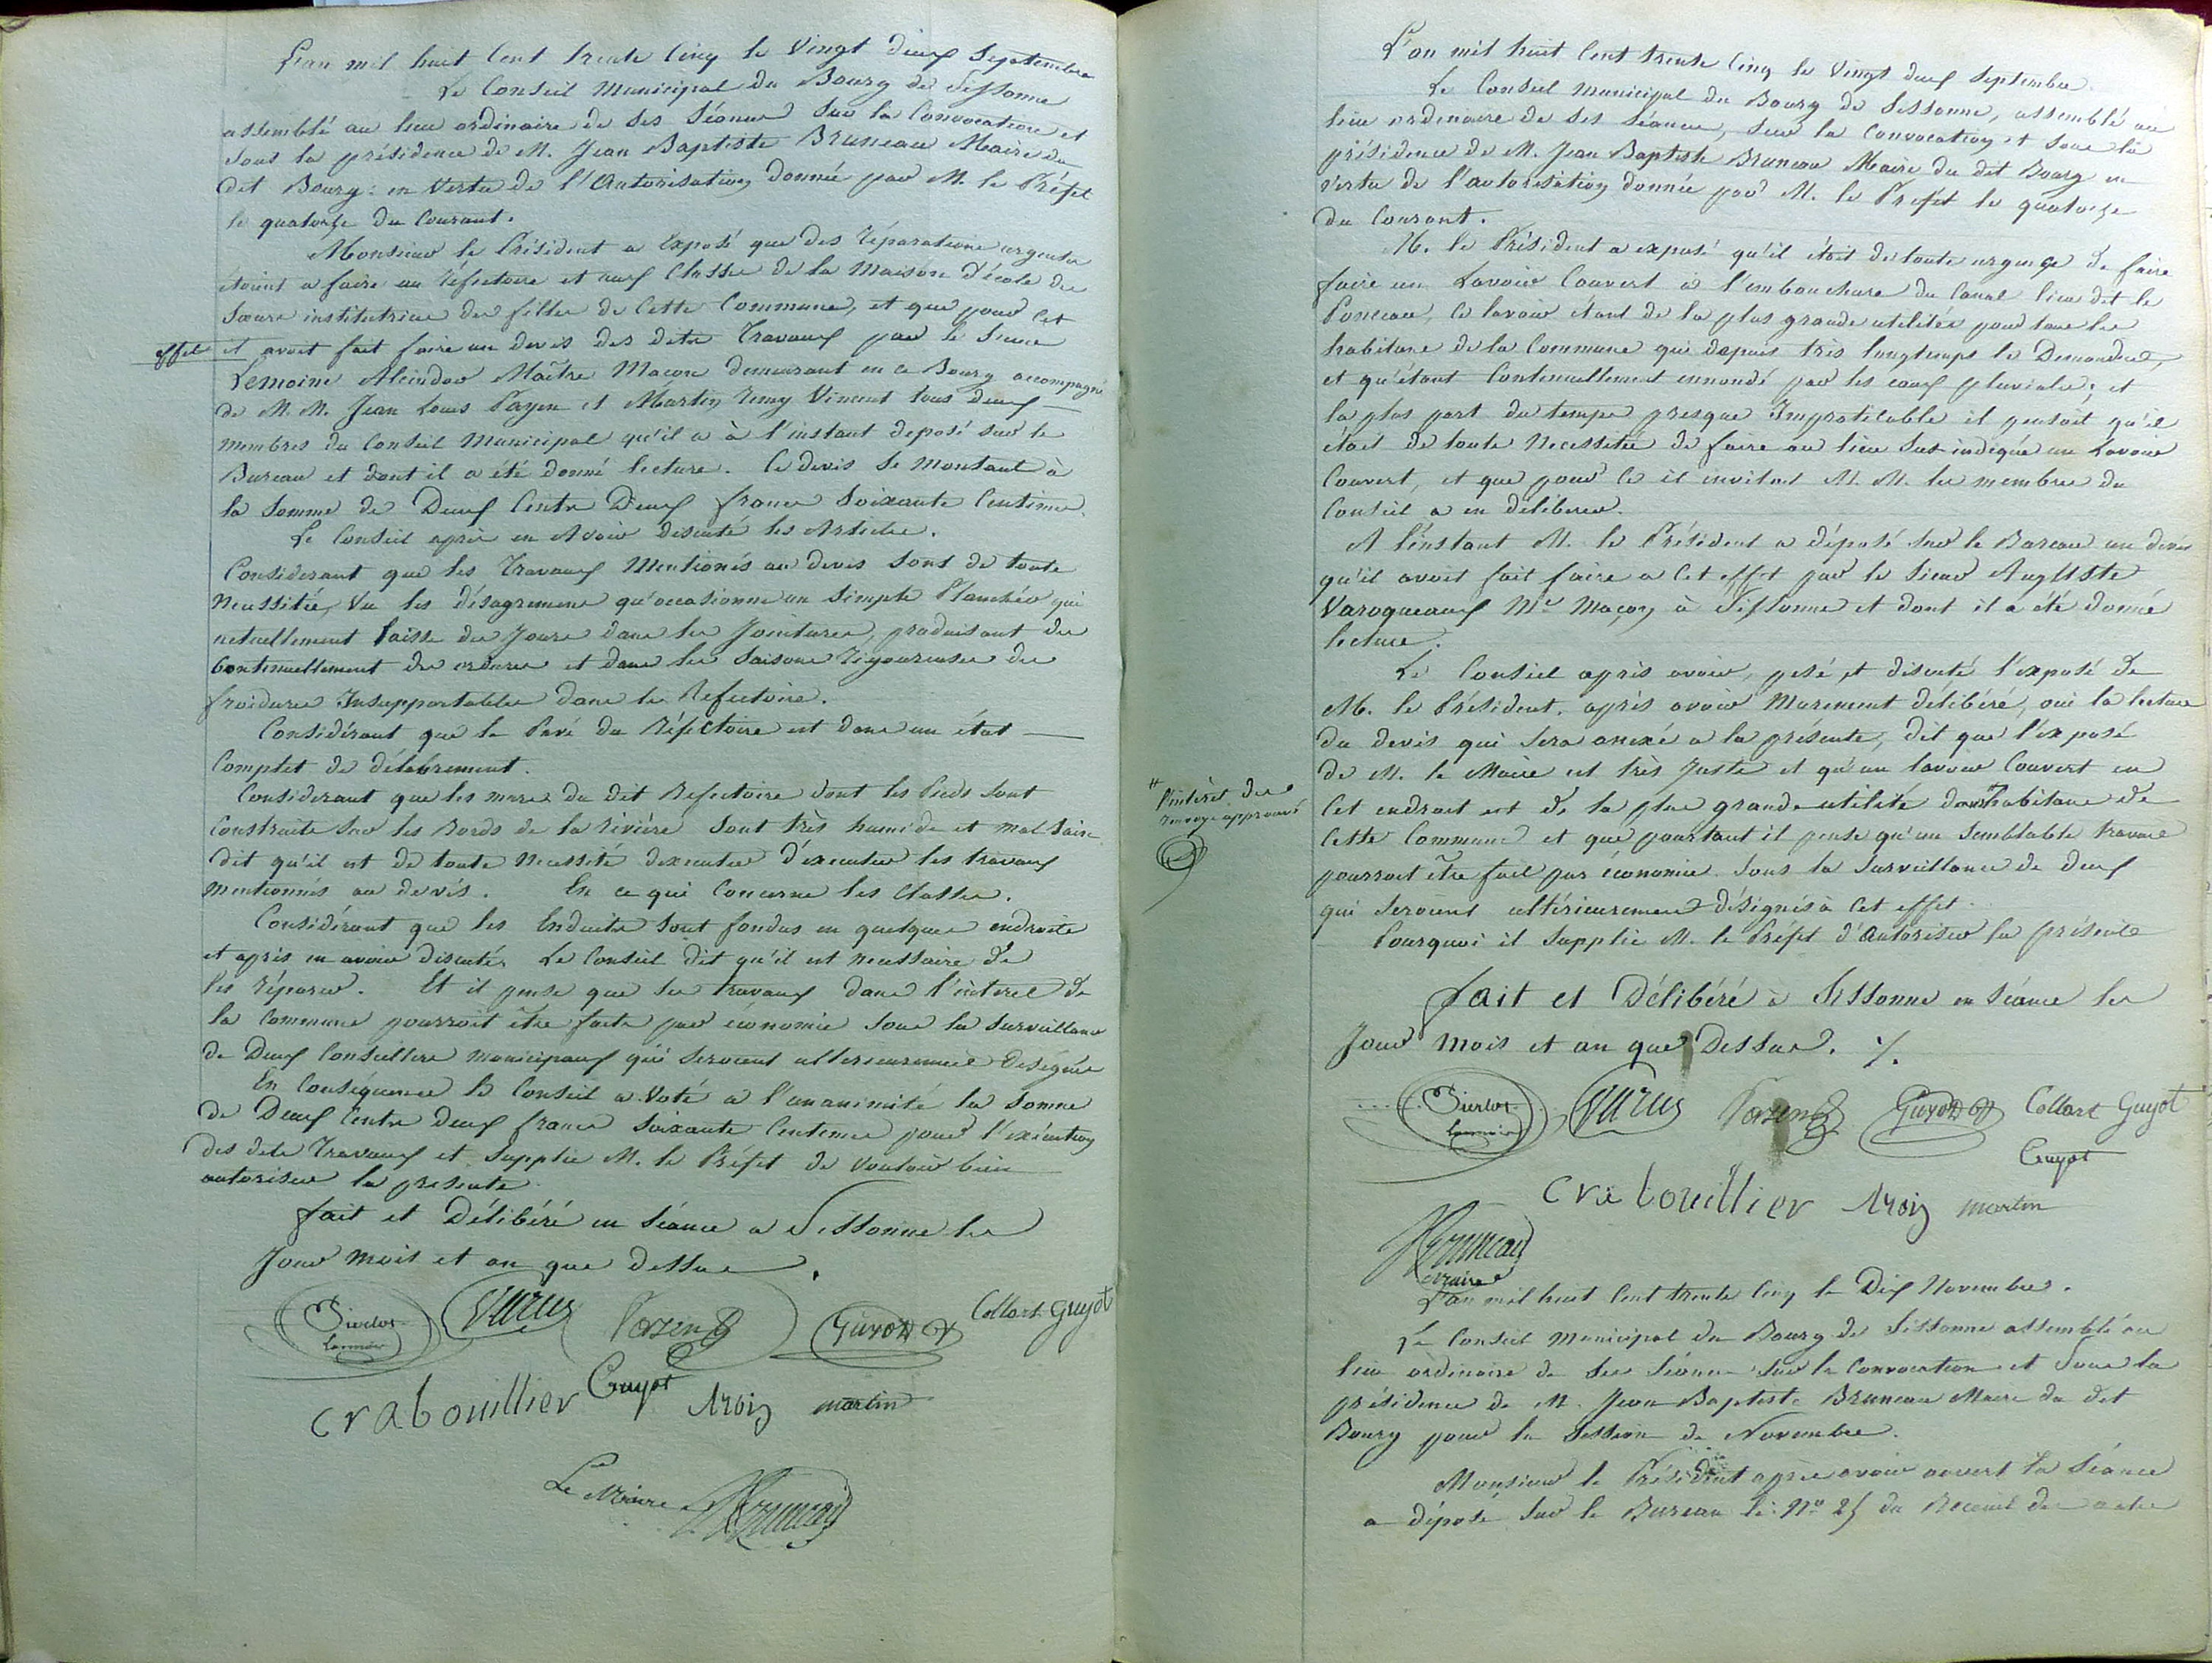 L'an mil huit Cent trente Cinq le Vingt deux Septembre
Le Conseil Municipal du Bourg de Sissonne
assemblé au lieu ordinaire de ses Séances Sur la Convocation et
Sous la présidence de M. Jean Baptiste Bruneau Maire du
dit Bourg : en Vertu de l'Autorisation donnée par M. le Préfet
le quatorze du Courant.
Monsieur le Président a Exposé que des réparations urgentes
étoient a faire au réfectoire et aux Classes de la Maison d'école des
Sœurs institutrices des filles de Cette Commune, et que pour Cet
effet il avoit fait faire un devis des dits Travaux par le Sieur
Lemoine Alcindor Maître Maçon demeurant en ce Bourg accompagné
de M. M. Jean Louis Payen et Martin Remy Vincent tous deux
membres du Conseil Municipal qu'il a à l'instant déposé sur le
Bureau et dont il a été donné lecture. Ce devis Se Montant à
la Somme de Deux Cents Deux francs Soixante Centimes.
Le Conseil après en Avoir discuté les Articles.
Considerant que les Travaux Mentionés au devis Sont de toute
Necessitée, Vu les désagremens qu'occasionne un Simple Planchér qui
actuellement laisse des Jours dans les Jointures, produisant des
Continuellement des ordures et dans les Saisons rigoureuses des
froidures Insupportables dans le Refectoire.
Considérant que le Pavé du Réfectoire est dans un état
Complet de délabrement.
Considerant que les murs du dit Refectoire dont les Pieds Sont
Construits Sur les Bords de la rivière Sont très humide et mal Sains
dit qu'il est de toute Necessité d'executer d'éxecuter les travaux
mentionnés au devis. En ce qui Concerne les Classes.
Considérant que les Enduits Sont fondus en quelques endroits
et après en avoir discutés Le Conseil dit qu'il est necessaire de
les réparer. Et il pense que Ses travaux dans l'intéret de
la Commune pourroit être faits par économie Sous la Surveillance
de Deux Conseillers Municipaux qui Seroient ulterieurement désignés
En Conséquence le Conseil a Voté a l'unanimité la Somme
de Deux Cents deux francs Soixante Centimes pour l'exécution
des dits Travaux et Supplie M. le Préfet de Vouloir bien
autoriser la presente
fait et Délibéré en Séance a Sissonne les
Jour Mois et an que dessus.
Collart Guyot
Crabouillier Guyot martin
Le Maire Bruneau
L'an mil huit Cent trente Cinq le Vingt deux Septembre.
Le Conseil Municipal du Bourg de Sissonne, assemblé au
lieu ordinaire de ses Séances, Sur la Convocation et Sous la
présidence de M. Jean Baptiste Bruneau Maire du dit Bourg en
Vertu de l'autorisation donnée par M. le Préfet le quatorze
du Courant.
M. le Président a exposé qu'il étoit de toute urgence de faire
faire un Lavoir Couvert à l'embouchure du Canal lieu dit le
Ponceau, Ce lavoir étant de la plus grande utilitée pour tous les
habitans de la Commune qui depuis très longtemps le Demandent,
et qu'étant Continuellement innondé par les eaux pluviales, et
la plus part du temps presque Impraticable il pensoit qu'il
étoit de toute Necessitée de faire au lieu Sus-indiqué un Lavoir
Couvert, et que pour Ce il invitoit M. M. les membres du
Conseil a en délibérer.
A l'instant M. le Président a déposé sur le Bureau un devis
qu'il avoit fait faire a Cet effet par le Sieur Auguste
Varoqueaux Me Maçon à Sissonne et dont il a été donné
lecture.
Le Conseil après avoir, pesé et discuté l'exposé de
M. le Président, après avoir Murement délibéré, oui la lecture
du devis qui Sera anexé a la présente, dit que l'exposé
de M. le Maire est très Juste et qu'un lavoir Couvert en
Cet endroit est de la plus grande utilité dans # habitans de
# l'intérèt des
renvoye approuvé
Cette Commune et que pourtant il pense qu'un Semblable travail
pourroit être fait par économie Sous la Surveillance de deux
qui Seroient ultérieurement désignés à Cet effet.
Pourquoi il Supplie M. le Préfet d'Autoriser la présente
fait et Délibéré à Sissonne en Séance les
Jour Mois et an que Dessus. ./.
Collart Guyot
Guyot
Crabouillier martin
Bruneau
Maire
L'an mil huit Cent trente Cinq le Dix Novembre.
Le Conseil Municipal du Bourg de Sissonne assemblé au
lieu ordinaire de ses Séances Sur la Convocation et Sous la
présidence de M. Jean Baptiste Bruneau Maire du dit
Bourg pour la Session de Novembre.
Monsieur le Président après avoir ouvert la Séance
a déposé Sur le Bureau le No 25 du Receuil des actes